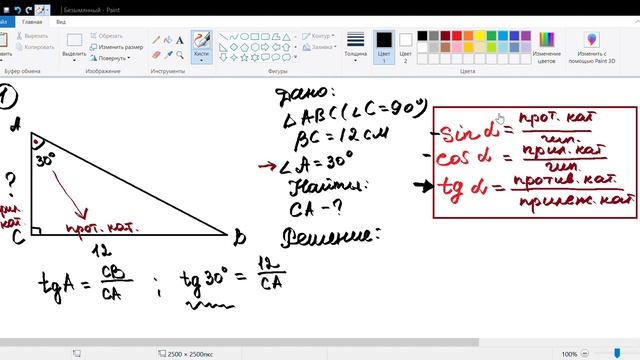 Безымянный - Paint
Файл
Главная
Вид
Вырезать
Копировать
Обрезать
Изменить размер
Повернуть
Выделить
Кисти
Контур
Заливка
Толщина
Цвет 1
Цвет 2
Изменение цветов
Изменить с помощью Paint 3D
Буфер обмена
Изображение
Инструменты
Фигуры
Цвета
1
A
30°
?
прил. кат.
C
прот. кат.
B
12
tg A = CB/CA ; tg 30° = 12/CA
Дано:
△ABC (∠C=90°)
BC = 12 см
∠A = 30°
Найти:
CA - ?
Решение:
sin α = прот. кат/гип.
cos α = прил. кат/гип.
tg α = против. кат./прилеж. кат
2500 × 2500пкс
100%